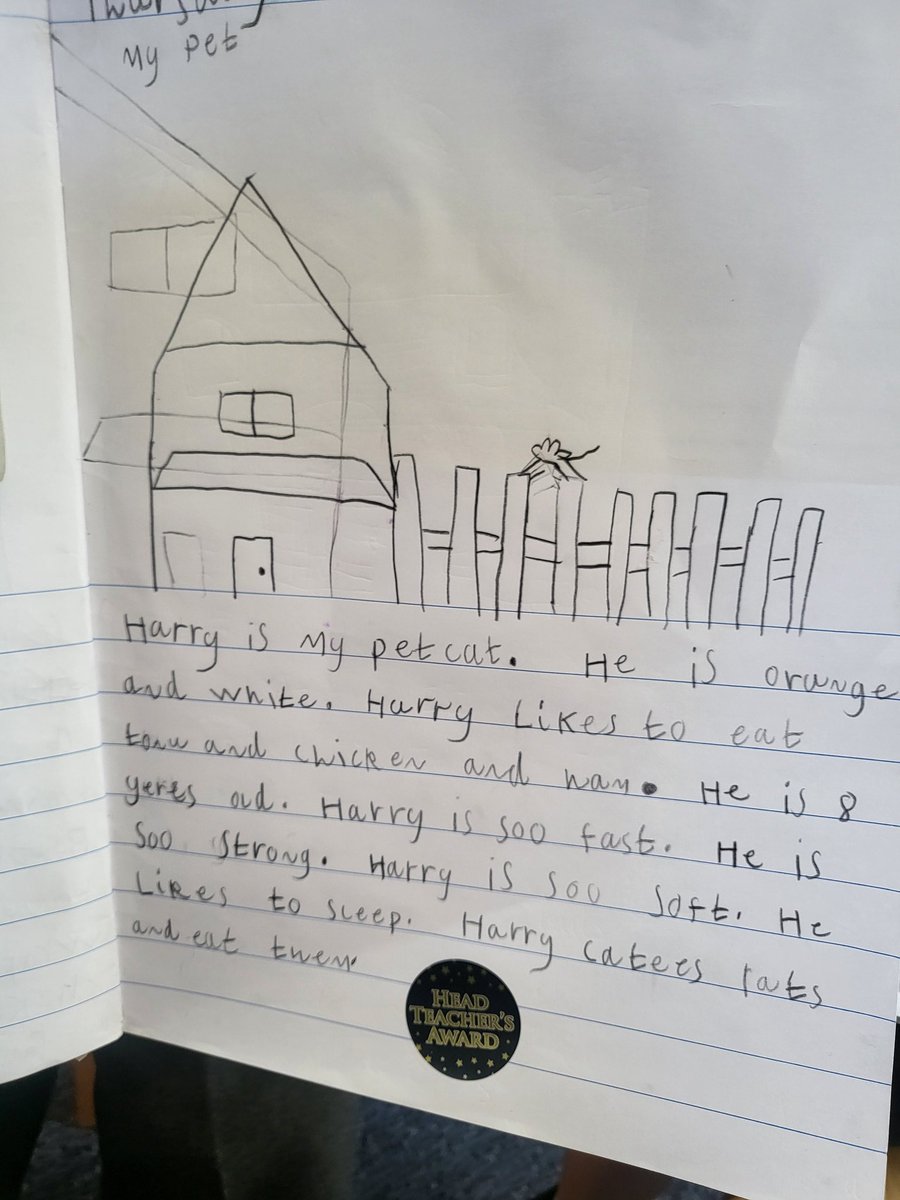 Thursday
My pet
Harry is my pet cat. He is orange
and white. Harry Likes to eat
tonu and chicken and ham. He is 8
yeres old. Harry is soo fast. He is
soo strong. Harry is soo soft. He
Likes to sleep. Harry catees rats
and eat them.
HEAD
TEACHER'S
AWARD